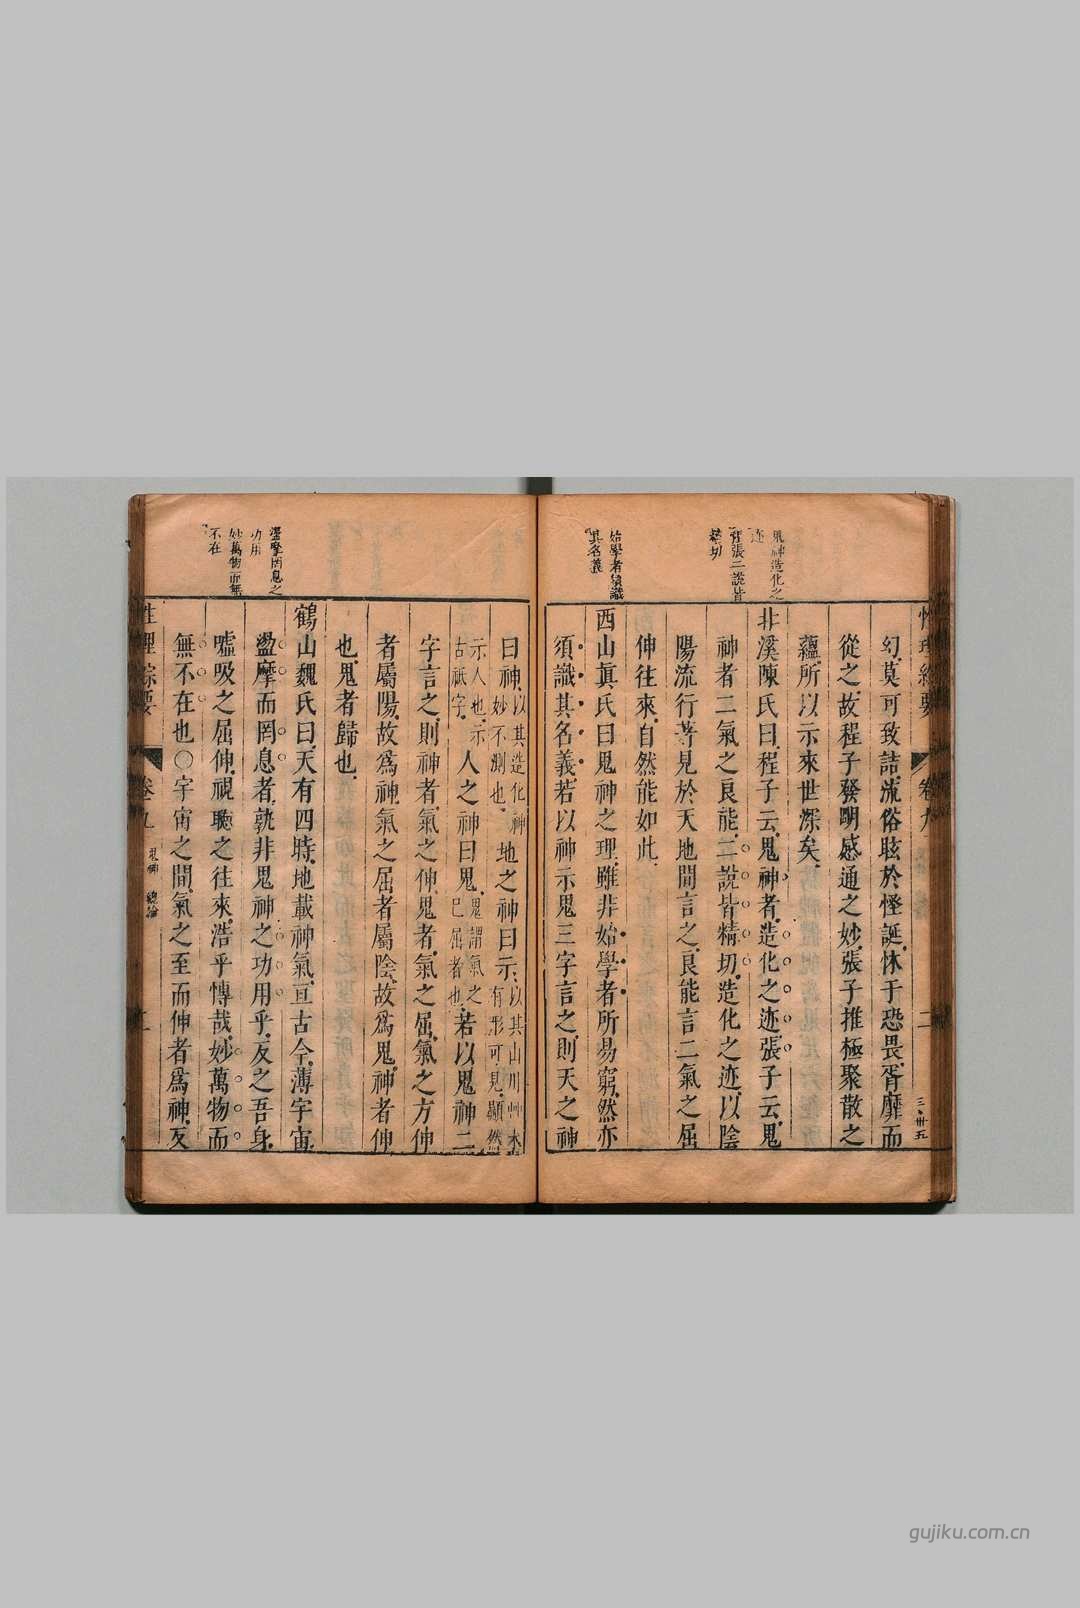 鬼神造化之
迹
程張二說皆
精切
始學者須識
其名義
性理綜要
卷九
二
三、卅五
幻莫可致詰流俗眩於怪誕怵于恐畏胥靡而
從之故程子發明感通之妙張子推極聚散之
蘊所以示來世深矣
北溪陳氏曰程子云鬼神者造化之迹張子云鬼
神者二氣之良能二說皆精切造化之迹以陰
陽流行著見於天地間言之良能言二氣之屈
伸往來自然能如此
西山眞氏曰鬼神之理雖非始學者所易窮然亦
須識其名義若以神示鬼三字言之則天之神
盪摩罔息之
功用
妙萬物而無
不在
曰神以其造化神妙不測也地之神曰示以其山川艸木有形可見顯然
示人也示古祇字人之神曰鬼鬼謂氣之已屈者也若以鬼神二
字言之則神者氣之伸鬼者氣之屈氣之方伸
者屬陽故爲神氣之屈者屬陰故爲鬼神者伸
也鬼者歸也
鶴山魏氏曰天有四時地載神氣亘古今薄宇宙
盪摩而罔息者孰非鬼神之功用乎反之吾身
噓吸之屈伸視聽之往來浩乎博哉妙萬物而
無不在也○宇宙之間氣之至而伸者爲神反
性理綜要
卷九
鬼神 總論
二
gujiku.com.cn